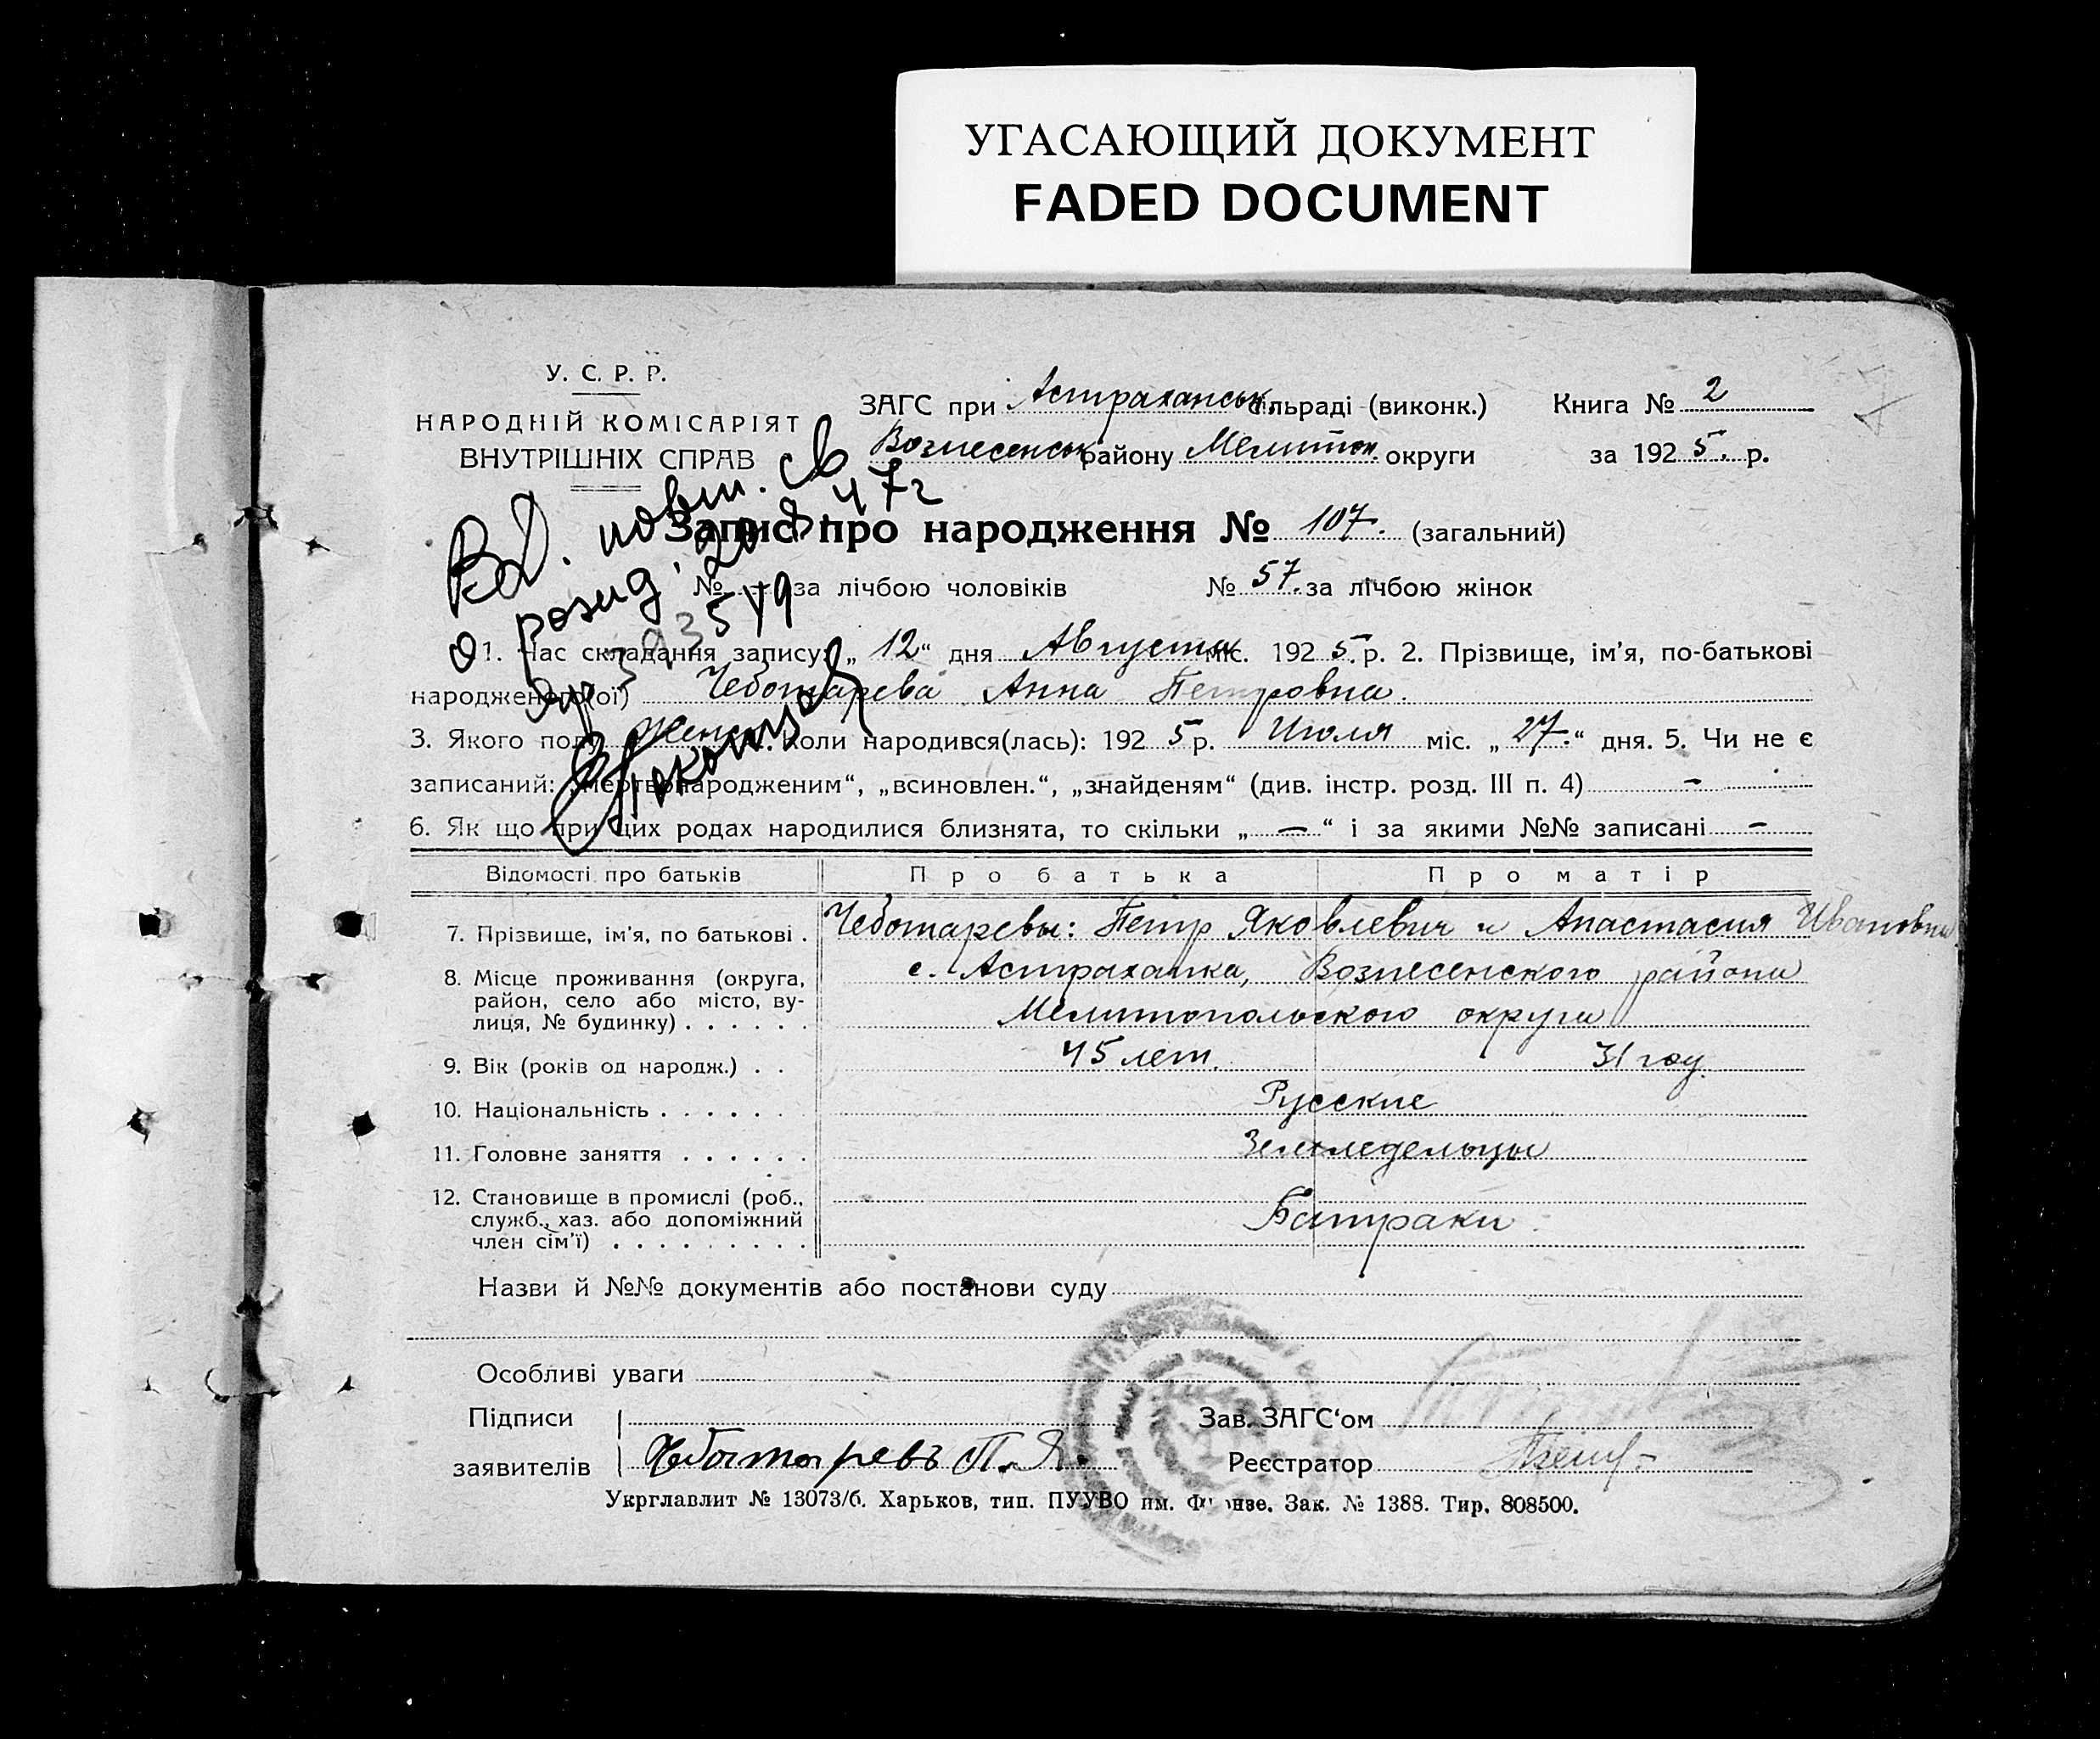 УГАСАЮЩИЙ ДОКУМЕНТ
FADED DOCUMENT
У. С. Р. Р.
НАРОДНІЙ КОМІСАРІЯТ
ВНУТРІШНІХ СПРАВ
ЗАГС при Астраханськ. сільраді (виконк.) Книга № 2
Вознесенськ району Мелитоп. округи за 1925. р.
Вид. повт. св
о рожд. 20 8 47г
Запис про народження № 107. (загальний)
№ - за лічбою чоловіків № 57. за лічбою жінок
1. Час складання запису: „12“ дня Августа міс. 1925. р. 2. Прізвище, ім'я, по-батькові
народженого(ої) Чеботарева Анна Петровна.
3. Якого полу Женск. Коли народився(лась): 1925 р. Июля міс. „27.“ дня. 5. Чи не є
записаний: „мертвонародженим“, „всиновлен.“, „знайденям“ (див. інстр. розд. III п. 4) -
6. Як що при цих родах народилися близнята, то скільки „—“ і за якими №№ записані -
Відомості про батьків Про батька Про матір
7. Прізвище, ім'я, по батькові . Чеботаревы: Петр Яковлевич и Анастасия Ивановна
8. Місце проживання (округа, район, село або місто, ву-лиця, № будинку) . . . . . . с. Астраханка, Вознесенского района
Мелитопольского округа
9. Вік (років од народж.) . . 45 лет. 31 год.
10. Національність . . . . . . Русские
11. Головне заняття . . . . . . Земледельцы
12. Становище в промислі (роб., служб., хаз. або допоміжний член сім'ї) . . . . . . . . . Батраки
Назви й №№ документів або постанови суду
Особливі уваги
Підписи Зав. ЗАГС‘ом
заявителів Чеботаревъ П. Я. Реєстратор
Укрглавлит № 13073/б. Харьков, тип. ПУУВО им. Фрунзе. Зак. № 1388. Тир. 808500.